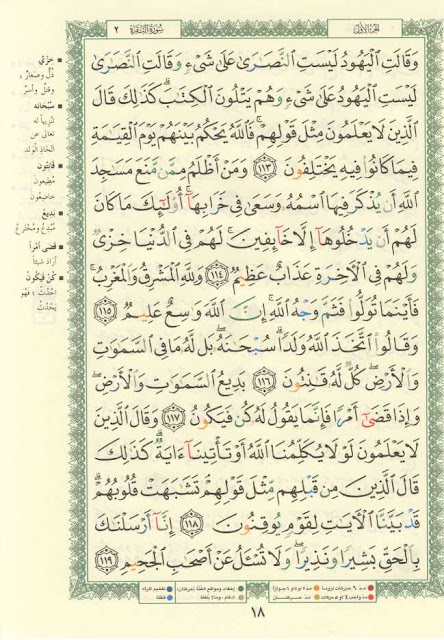 الجزء الأول
سورة البقرة
٢
وَقَالَتِ ٱلْيَهُودُ لَيْسَتِ ٱلنَّصَـٰرَىٰ عَلَىٰ شَىْءٍ وَقَالَتِ ٱلنَّصَـٰرَىٰ
لَيْسَتِ ٱلْيَهُودُ عَلَىٰ شَىْءٍ وَهُمْ يَتْلُونَ ٱلْكِتَـٰبَ ۗ كَذَٰلِكَ قَالَ
ٱلَّذِينَ لَا يَعْلَمُونَ مِثْلَ قَوْلِهِمْ ۚ فَٱللَّهُ يَحْكُمُ بَيْنَهُمْ يَوْمَ ٱلْقِيَـٰمَةِ
فِيمَا كَانُوا۟ فِيهِ يَخْتَلِفُونَ ﴿١١٣﴾ وَمَنْ أَظْلَمُ مِمَّن مَّنَعَ مَسَـٰجِدَ
ٱللَّهِ أَن يُذْكَرَ فِيهَا ٱسْمُهُۥ وَسَعَىٰ فِى خَرَابِهَآ ۚ أُو۟لَـٰٓئِكَ مَا كَانَ
لَهُمْ أَن يَدْخُلُوهَآ إِلَّا خَآئِفِينَ ۚ لَهُمْ فِى ٱلدُّنْيَا خِزْىٌ
وَلَهُمْ فِى ٱلْـَٔاخِرَةِ عَذَابٌ عَظِيمٌ ﴿١١٤﴾ وَلِلَّهِ ٱلْمَشْرِقُ وَٱلْمَغْرِبُ ۚ
فَأَيْنَمَا تُوَلُّوا۟ فَثَمَّ وَجْهُ ٱللَّهِ ۚ إِنَّ ٱللَّهَ وَٰسِعٌ عَلِيمٌ ﴿١١٥﴾
وَقَالُوا۟ ٱتَّخَذَ ٱللَّهُ وَلَدًا ۗ سُبْحَـٰنَهُۥ ۖ بَل لَّهُۥ مَا فِى ٱلسَّمَـٰوَٰتِ
وَٱلْأَرْضِ ۖ كُلٌّ لَّهُۥ قَـٰنِتُونَ ﴿١١٦﴾ بَدِيعُ ٱلسَّمَـٰوَٰتِ وَٱلْأَرْضِ ۖ
وَإِذَا قَضَىٰٓ أَمْرًا فَإِنَّمَا يَقُولُ لَهُۥ كُن فَيَكُونُ ﴿١١٧﴾ وَقَالَ ٱلَّذِينَ
لَا يَعْلَمُونَ لَوْلَا يُكَلِّمُنَا ٱللَّهُ أَوْ تَأْتِينَآ ءَايَةٌ ۗ كَذَٰلِكَ
قَالَ ٱلَّذِينَ مِن قَبْلِهِم مِّثْلَ قَوْلِهِمْ ۘ تَشَـٰبَهَتْ قُلُوبُهُمْ ۗ
قَدْ بَيَّنَّا ٱلْـَٔايَـٰتِ لِقَوْمٍ يُوقِنُونَ ﴿١١٨﴾ إِنَّآ أَرْسَلْنَـٰكَ
بِٱلْحَقِّ بَشِيرًا وَنَذِيرًا ۖ وَلَا تُسْـَٔلُ عَنْ أَصْحَـٰبِ ٱلْجَحِيمِ ﴿١١٩﴾
خِزْيٌ
ذُلٌّ وصَغارٌ،
وقتلٌ وأسرٌ
سُبْحَانَهُ
تنزيهاً له
تعالى عن
اتخاذ الولد
قانِتُون
مُطيعون
خاضِعون
بَدِيعُ
مُبدعُ ومُخترعُ
قضى أمراً
أراد شيئاً
كُنْ فيَكُونُ
احْدُثْ؛ فَهُو
يَحْدُثُ
مدّ ٦ حركات لزوماً
مدّ ٢ أو ٤ أو ٦ جوازاً
إخفاء، ومواقع الغُنَّة (حركتان)
تفخيم الراء
مدّ واجب ٤ أو ٥ حركات
مدّ حركتان
إدغام، وما لا يُلفَظ
قلقلة
١٨